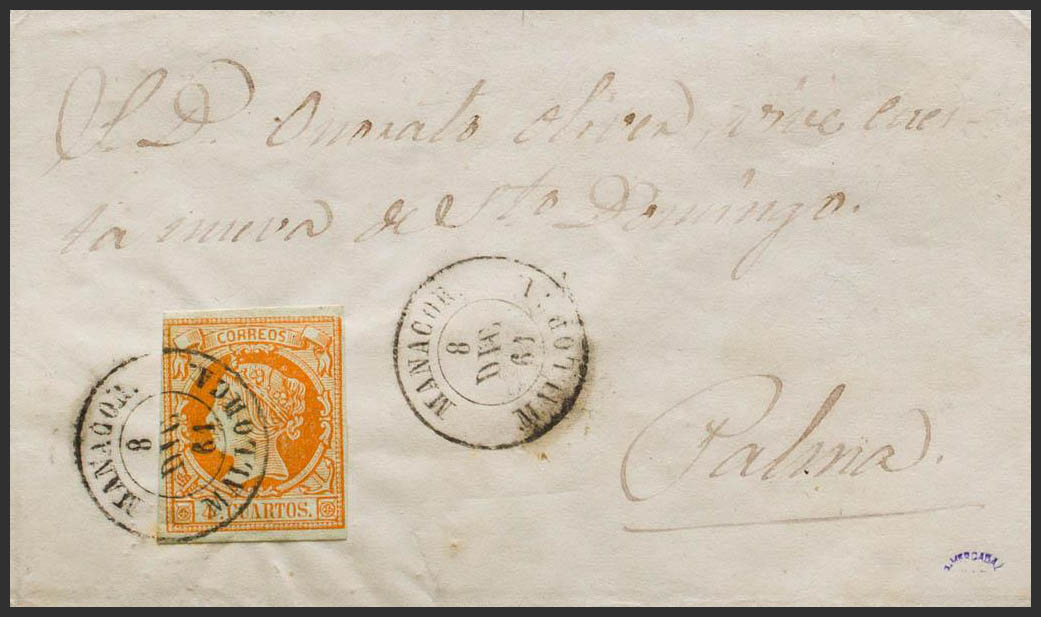 A D. Onorato Oliver, vive cues-
ta nueva de Sto Domingo.
CORREOS
4 CUARTOS.
MANACOR. MALLORCA.
8
DIC
61
MANACOR. MALLORCA.
8
DIC
61
Palma.
J. MERCADAL